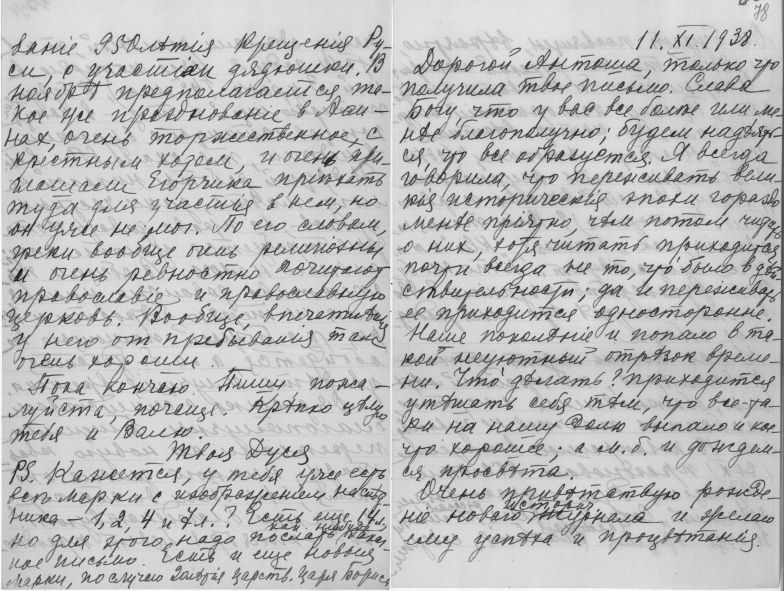 ванiе 950лѣтiя Крещенiя Ру-
си, с участiем дядюшки. В
ноябрѣ предполагается та-
кое же празднованiе в Афи-
нах, очень торжественное, с
крестным ходом, и очень при-
глашали Егорчика прiѣхать
туда для участiя в нем, но
он уже не мог. По его словам,
греки вообще очень религiозны
и очень ревностно почитают
православiе и православную
церковь. Вообще, впечатлѣнiя
у него от пребыванiя там
очень хорошiя.
Пока кончаю. Пиши пожа-
луйста, почаще. Крѣпко цѣлую
тебя и Валю.
Твоя Дуся
PS. Кажется, у тебя уже есть
всѣ марки с изображенiем наслѣд-
ника – 1, 2, 4 и 7 л.? Есть еще 14 л.,
но для этого надо послать какое-нибудь
ное письмо. Есть и еще новыя
марки, по случаю 20лѣтiя царств. Царя Бориса
78
11. XI. 1938.
Дорогой Антоша, только что
получила твое письмо. Слава
Богу, что у вас все болѣе или ме-
нѣе благополучно; будем надѣять-
ся, что все образуется. Я всегда
говорила, что переживать вели-
кiя историческiя эпохи гораздо
менѣе прiятно, чѣм потом читать
о них, хотя читать приходится
почти всегда не то, что было в дѣй-
ствительности, да и переживать
ее приходится односторонне.
Наше поколѣнiе и попало в та-
кой неуютный отрѣзок време-
ни. Что дѣлать? Приходится
утѣшать себя тѣм, что все-та-
ки на нашу долю выпало и кое-
что хорошее; а м. б. и дождем-
ся просвѣта.
Очень привѣтствую рожде-
нiе новаго истори. журнала и желаю
ему успѣха и процвѣтанiя.